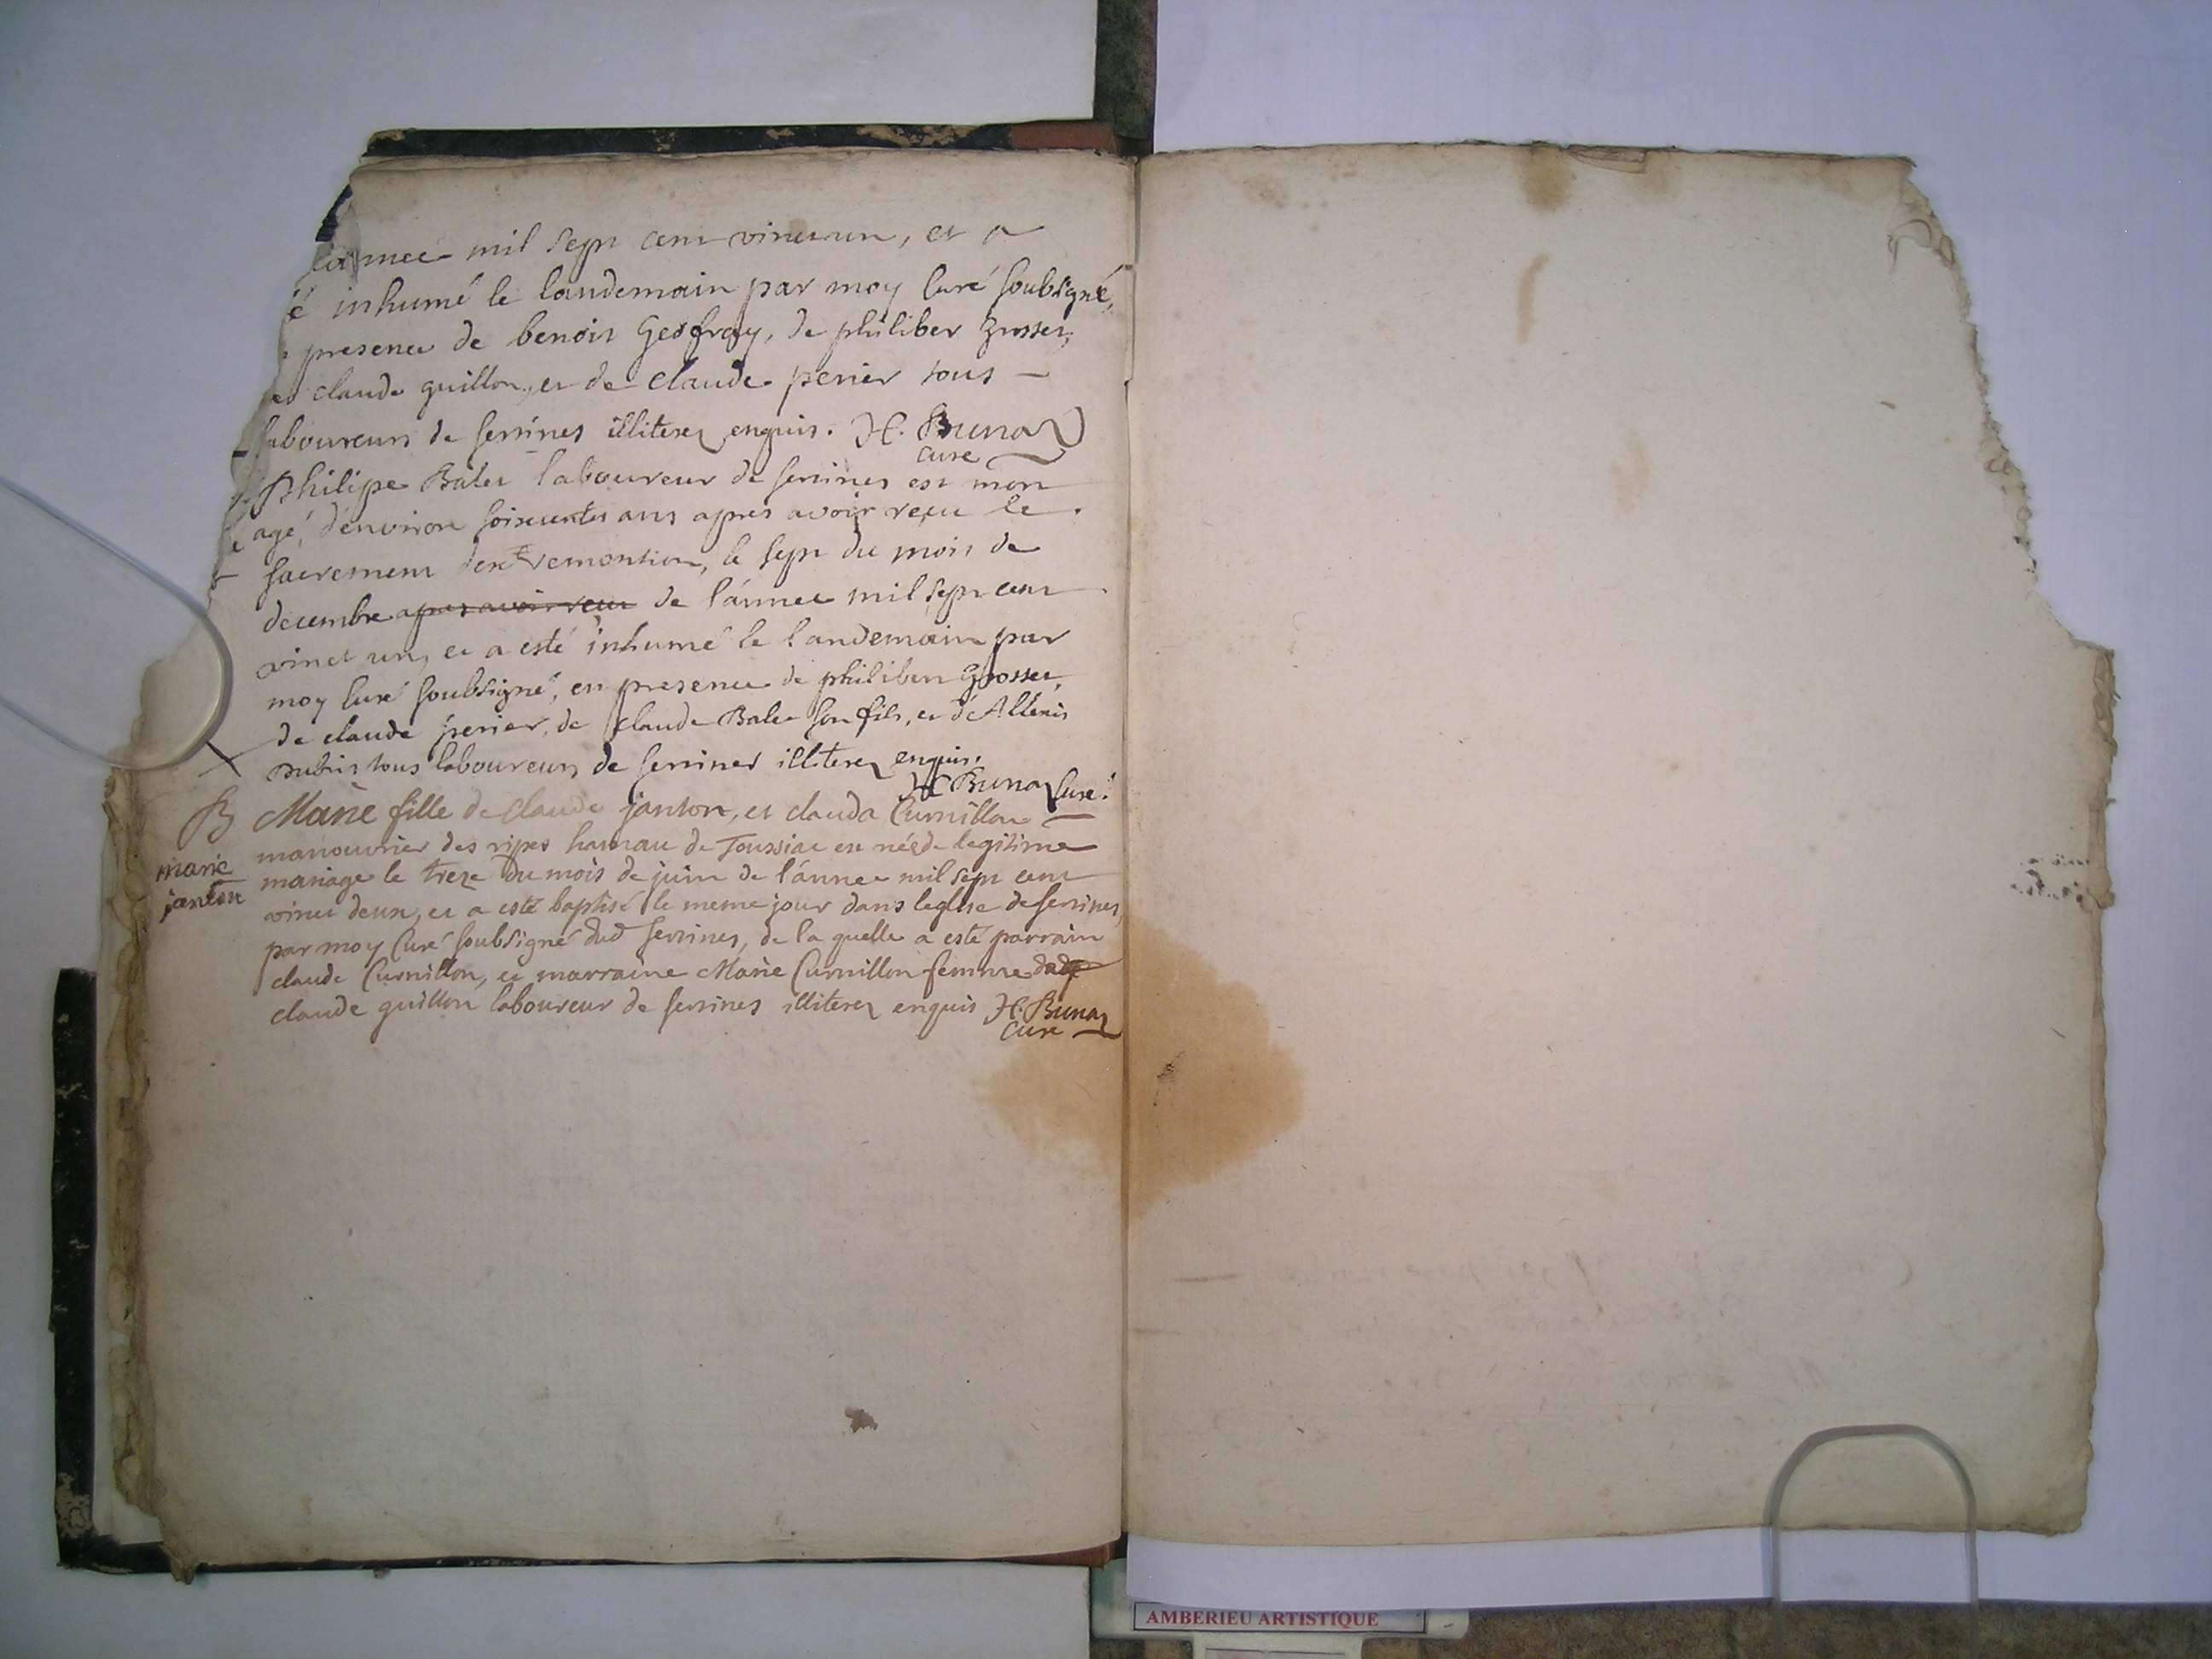 l'annee mil sept cent vinct un, et a
é inhumé le landemain par moy Curé soubsigné,
presence de benoit Geofray, de philiber Grosset,
claude guillon, et de claude perier tous
laboureurs de serrines illiterez enquis. H. Brunaz
curé
Philipe Balet laboureur de serrines est mort
agé d'environ soixentes ans apres avoir reçu le
sacrement d'extremontion, le sept du mois de
decembre apres avoir reçu de l'annee mil sept cent
vinct un, et a esté inhumé le landemain par
moy Curé soubsigné, en presence de philibert Grosset,
de claude perier, de claude Balet son fils, et d'
tous laboureurs de serrines illiterez enquis.
H Brunaz Curé.
B Marie fille de claude janton, et clauda Curnillon
manouvrier des ripes hamau de Toussiac est née de legitime
marie mariage le treze du mois de juin de l'annee mil sept cent
janton vinct deux, et a esté baptisé le meme jour dans leglise de serrines,
par moy Curé soubsigné dud serrines, de la quelle a esté parrain
claude Curnillon, et marraine Marie Curnillon femme de
claude guillon laboureur de serrines illiterez enquis H. Brunaz
Curé
AMBERIEU ARTISTIQUE